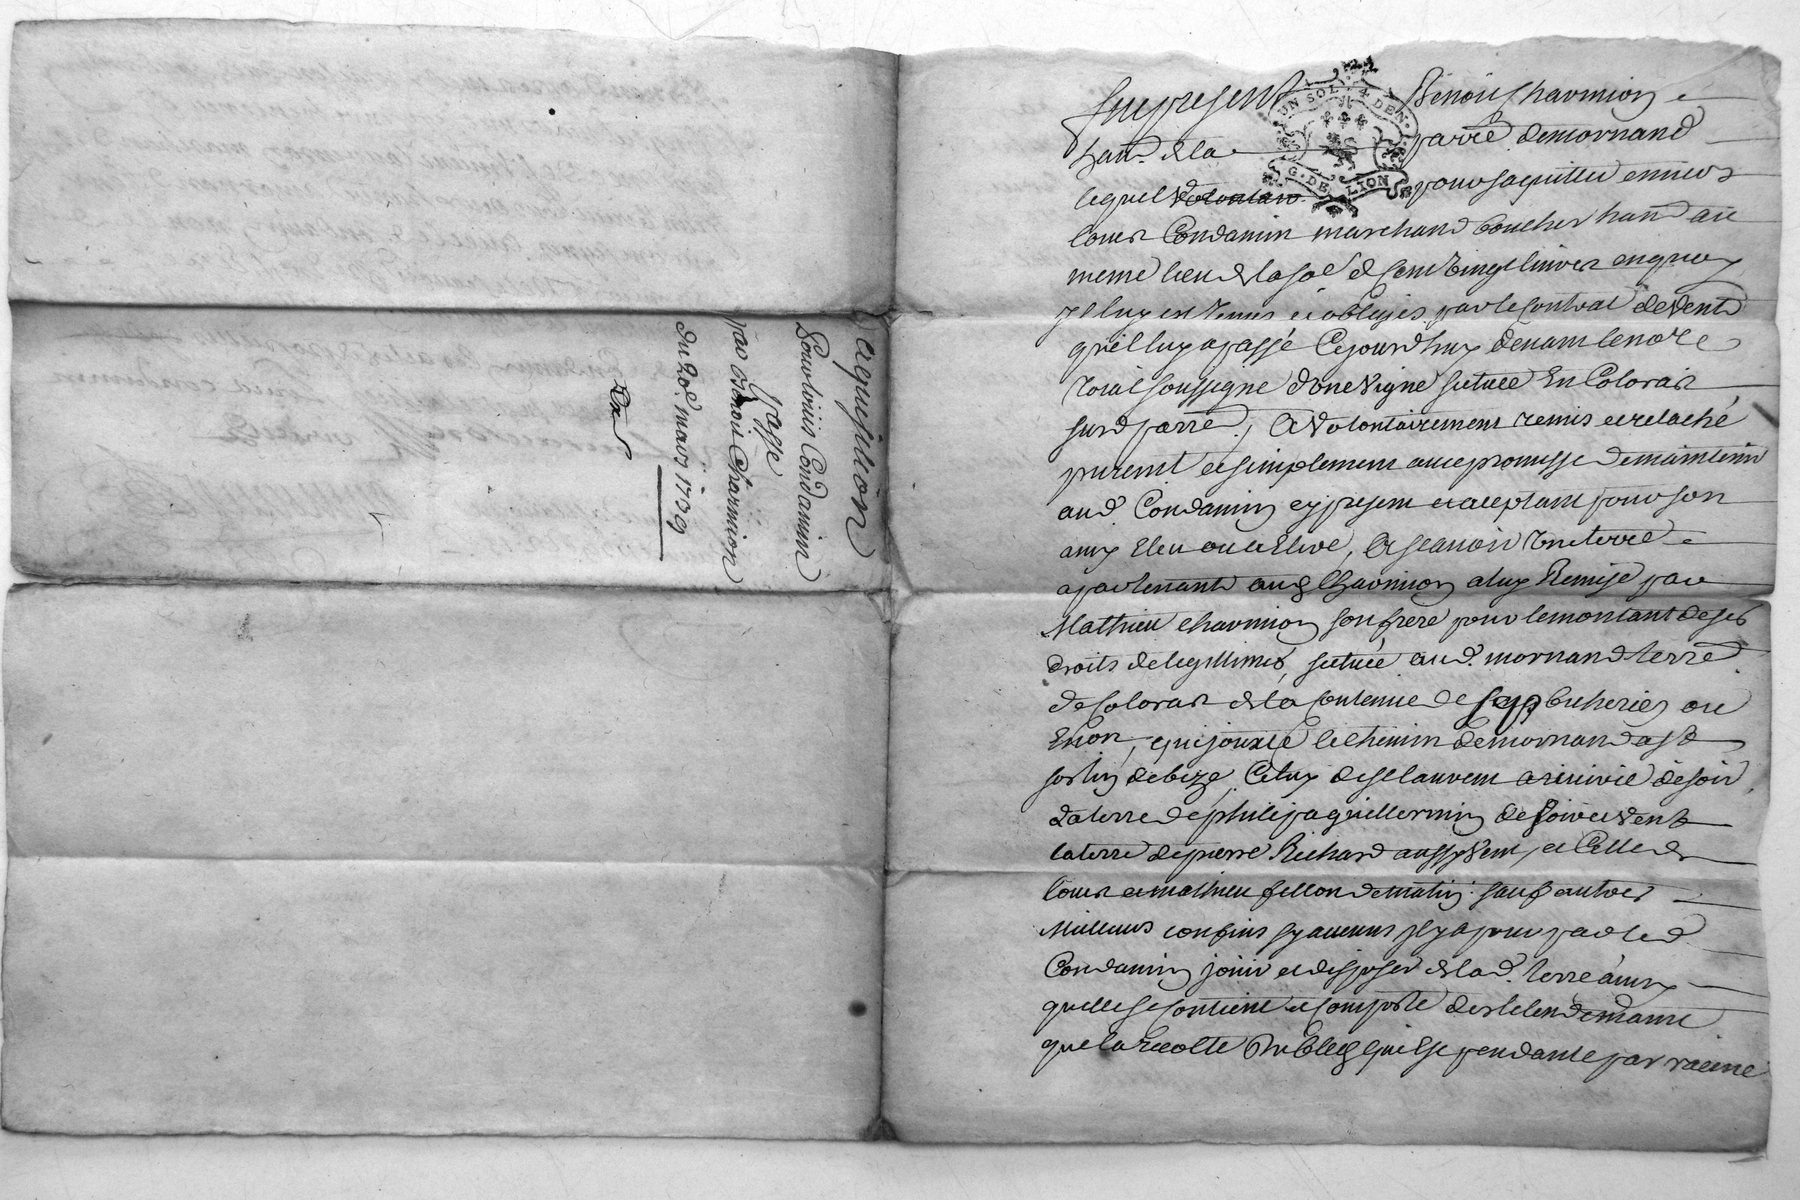 aquisition
Pour loüis Condamin
passé
par Benoit Charmion
du 20e. mars 1739
UN SOL 4 DEN.
G. DE LION
Fut present Benoit Charmion
hant. de la parre. de mornand
lequel pour saquitter envers
Louis Condamin marchand boucher hant. au
meme lieu de la so͞e de cent vingt livres en quoy
il luy est tenus et obligés par le contrat de vente
qu'il luy a passé Cejourdhuy devant le no͞re
roial soussigne d'une vigne scituée En Colovras
susd. parre., A volontairement remis et relaché
purem͞t et simplement avec promesse de maintenir
aud. Condamin cy present et acceptant pour son
amy Eleu ou a Elire, Ascavoir Une terre
apartenante aud. Charmion a luy Remise par
Mathieu charmion son frere pour le montant de ses
droits de legittimes, scituée aud. mornand terre.
de Colovras de la contenue de bicherées ou
Environ, qui jouxte le chemin de mornand a st
de bize, Celuy de st laurent de soir,
La terre de philipa guillermin de soir et vent
la terre de pierre Richard aussy vent, et Celle de
Louis et mathieu fellon de matin sauf autres
Meilleurs confins sy aucuns il y a pour par led.
Condamin jouir et disposer de lad. terre ainsy
quelle se contient et comporte des le lendemain
que la recolte du bled quil se pendante par racine